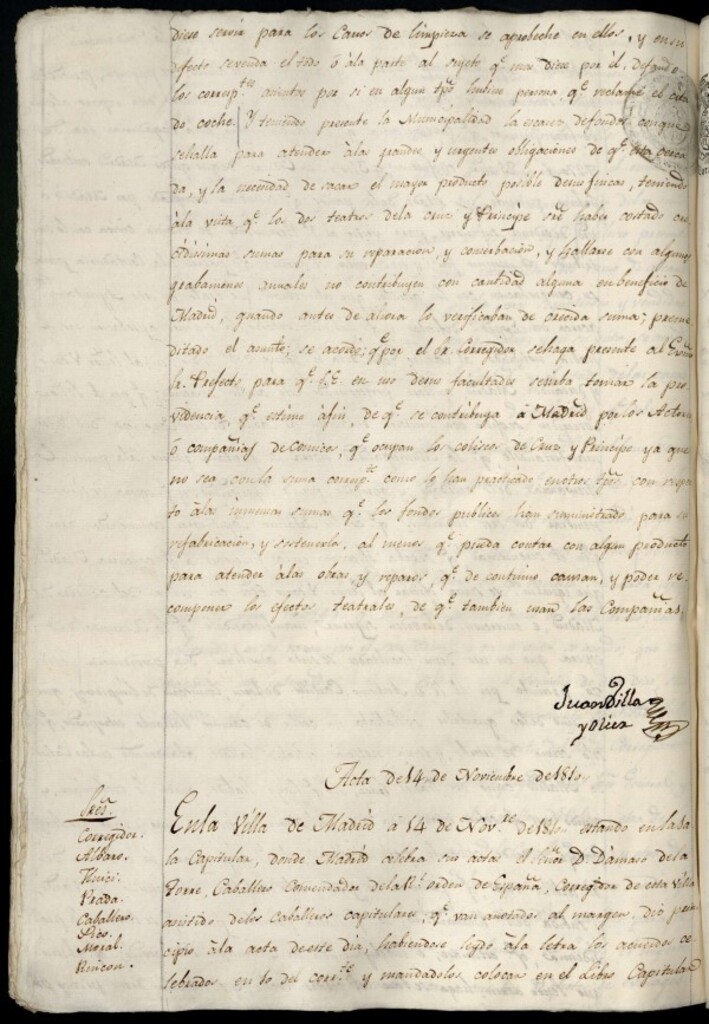 diese servir para los Carros de limpieza se aproveche en ellos, y en su
defecto se venda el todo ó â la parte al sujeto q.e mas diese por él, dejando
los corresp.tes asientos por si en algun tpõ hubiese persona q.e reclame el cita
do coche. Y teniendo presente la Municipalidad la escasez de fondos con que
se halla para atender âlas grandes y urgentes obligaciones de q.e esta cerca
da, y la necesidad de sacar el mayor producto posible de sus fincas, teniendo
âla vista q.e los dos teatros dela Cruz y Principe sre haber costado cre
cidisimas sumas para su reparacion, y conserbacion, y hallarse con algunos
grabamenes anuales no contribuyen con cantidad alguna en beneficio de
Madrid, quando antes de ahora lo verificaban de crecida suma; preme
ditado el asunto; se acordó; q.e por el Sr. Corregidor se haga presente al Exmo
Sr. Prefecto para q.e S.E. en uso de sus facultades se sirba tomar la pro
videncia, q.e estime âfin, de q.e se contribuya â Madrid por los Actores
ô compañias de Comicos, q.e ocupan los coliseos de Cruz, y Principe ya que
no sea con la suma corresp.te como lo han practicado en otros tpõs con respe
to âlas inmensas sumas q.e los fondos publicos han suministrado para su
refabricacion, y sostenerla, al menos q.e pueda contar con algun producto
para atender âlas obras, y reparos, q.e de continuo causan, y poder re
componer los efectos teatrales, de q.e tambien usan las Compañias.
Juan Villa
y Olier
Acta de 14 de Noviembre de 1810.
Sres.
Corregidor.
Albaro.
Prada.
Caballero.
Pico.
Moral.
Rincon.
En la Villa de Madrid â 14 de Nov.re de 1810 estando en la Sa
la Capitular, donde Madrid celebra sus actas el Señor D. Dámaso de la
Torre, Caballero Comendador de la R.l orden de España, Corregidor de esta Villa
asistido delos Caballeros capitulares, q.e van anotados al margen, dió prin
cipio âla acta de este dia, habiendose leydo âla letra los acuerdos ce
lebrados en 10 del corr.te y mandadolos colocar en el Libro Capitular